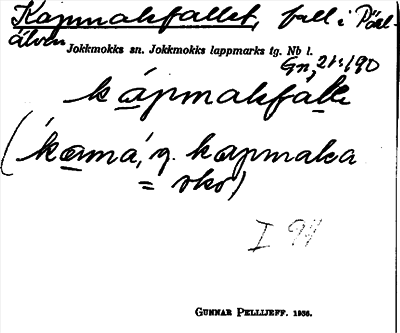 Kapmakfallet, fall i Pärl-
älven
Jokkmokks sn. Jokkmokks lappmarks tg. Nb l.
kápmakfáll
(kamá, g. kapmaka
= sko)
I 94
GUNNAR PELLIJEFF. 1936.